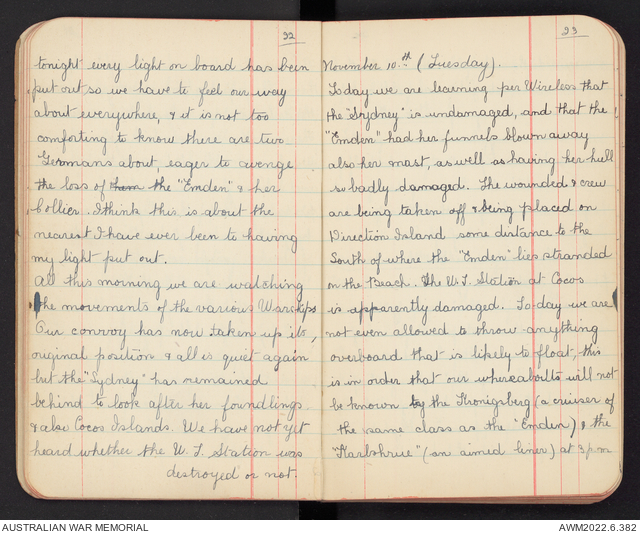 22
tonight every light on board has been
put out so we have to feel our way
about everywhere, & it is not too
comforting to know there are two
Germans about, eager to avenge
the loss of them the "Emden" & her
Collier. I think this is about the
nearest I have ever been to having
my light put out.
All this morning we are watching
the movements of the various Warships,
Our convoy has now taken up its,
original position & all is quiet again
but the "Sydney" has remained
behind to look after her foundlings
& also Cocos Islands. We have not yet
heard whether the W. T. Station was
destroyed or not.
23
November 10th (Tuesday).
Today we are learning per Wireless that
the "Sydney" is undamaged, and that the
"Emden" had her funnels blown away
also her mast, as well as having her hull
so badly damaged. The wounded & crew
are being taken off & being placed on
Direction Island some distance to the
South of where the "Emden" lies stranded
on the Beach. The W. T. Station at Cocos
is apparently damaged. Today we are
not even allowed to throw anything
overboard that is likely to float, this
is in order that our whereabolts will not
be known by the Kronigsberg (a cruiser of
the same class as the "Emden") & the
"Karlshrue" (an aimed liner) at 3 p.m
AUSTRALIAN WAR MEMORIAL
AWM2022.6.382